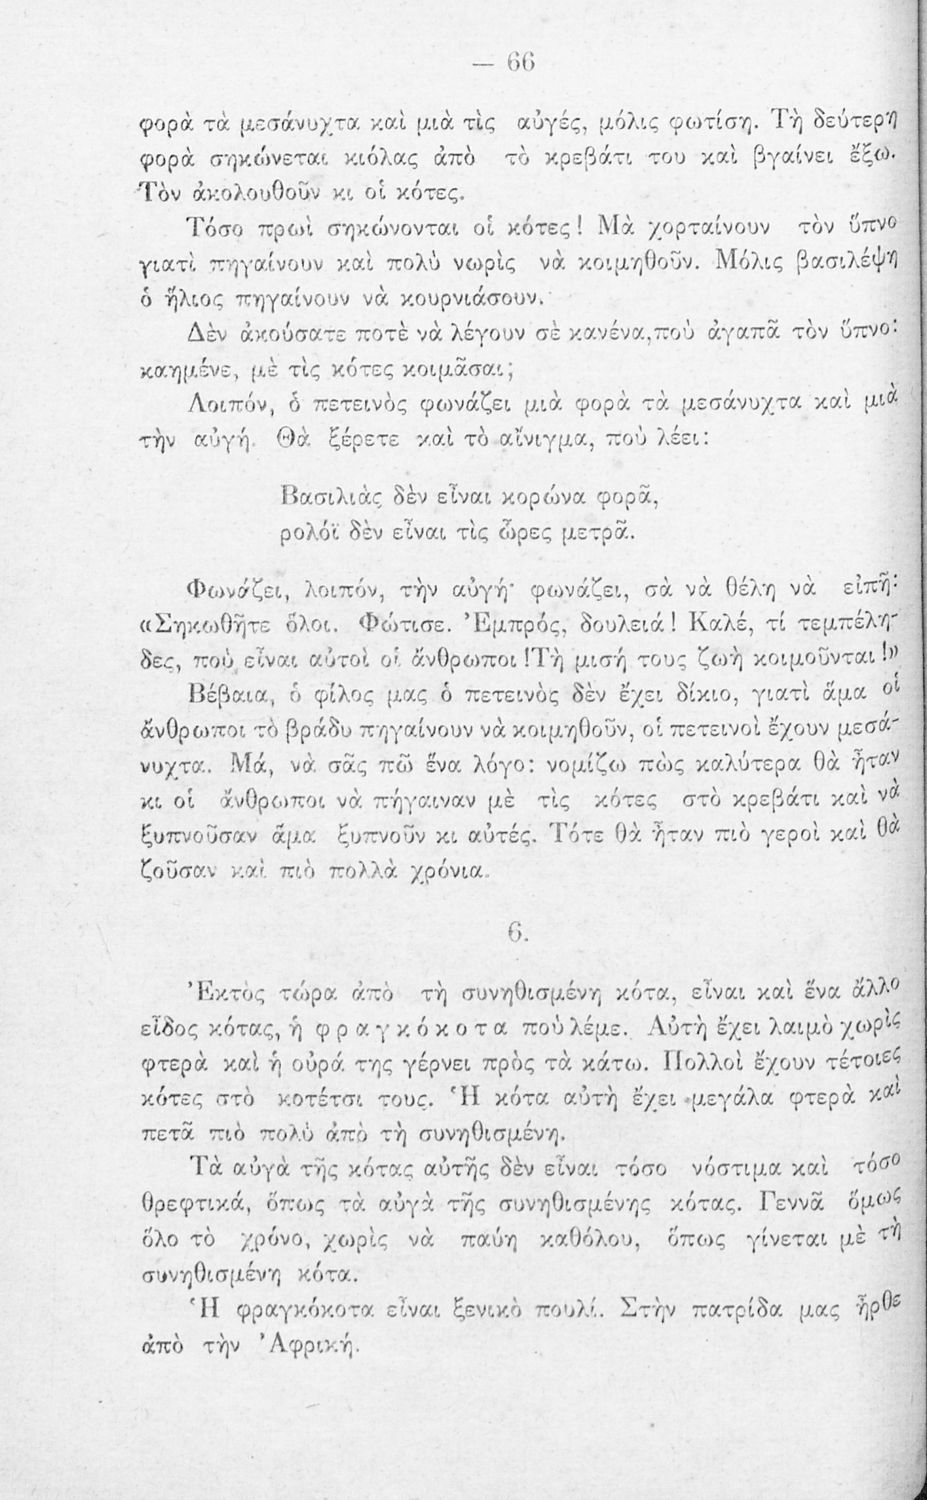 — 66
φορὰ τὰ μεσάνυχτα καὶ μιὰ τὶς αὐγές, μόλις φωτίση. Τὴ δεύτερη
φορὰ σηκώνεται κιόλας ἀπὸ τὸ κρεβάτι του καὶ βγαίνει ἔξω.
Τὸν ἀκολουθοῦν κι οἱ κότες.
Τόσο πρωὶ σηκώνονται οἱ κότες! Μὰ χορταίνουν τὸν ὕπνο
γιατὶ πηγαίνουν καὶ πολὺ νωρὶς νὰ κοιμηθοῦν. Μόλις βασιλέψη
ὁ ἥλιος πηγαίνουν νὰ κουρνιάσουν.
Δὲν ἀκούσατε ποτὲ νὰ λέγουν σὲ κανένα,ποὺ ἀγαπᾶ τὸν ὕπνο:
καημένε, μὲ τὶς κότες κοιμᾶσαι;
Λοιπόν, ὁ πετεινὸς φωνάζει μιὰ φορὰ τὰ μεσάνυχτα καὶ μιὰ
τὴν αὐγή. Θὰ ξέρετε καὶ τὸ αἴνιγμα, ποὺ λέει:
Βασιλιὰς δὲν εἶναι κορώνα φορᾶ,
ρολόϊ δὲν εἶναι τὶς ὧρες μετρᾶ.
Φωνάζει, λοιπόν, τὴν αὐγή· φωνάζει, σὰ νὰ θέλη νὰ εἰπῆ:
«Σηκωθῆτε ὅλοι. Φώτισε. Ἐμπρός, δουλειά! Καλέ, τί τεμπέλη-
δες, ποὺ εἶναι αὐτοὶ οἱ ἄνθρωποι!Τὴ μισή τους ζωὴ κοιμοῦνται!»
Βέβαια, ὁ φίλος μας ὁ πετεινὸς δὲν ἔχει δίκιο, γιατὶ ἅμα οἱ
ἄνθρωποι τὸ βράδυ πηγαίνουν νὰ κοιμηθοῦν, οἱ πετεινοὶ ἔχουν μεσά-
νυχτα. Μά, νὰ σᾶς πῶ ἕνα λόγο: νομίζω πὼς καλύτερα θὰ ἦταν
κι οἱ ἄνθρωποι νὰ πήγαιναν μὲ τὶς κότες στὸ κρεβάτι καὶ νὰ
ξυπνοῦσαν ἅμα ξυπνοῦν κι αὐτές. Τότε θὰ ἦταν πιὸ γεροὶ καὶ θὰ
ζοῦσαν καὶ πιὸ πολλὰ χρόνια.
6.
Ἐκτὸς τώρα ἀπὸ τὴ συνηθισμένη κότα, εἶναι καὶ ἕνα ἄλλο
εἶδος κότας, ἡ φραγκόκοτα ποὺ λέμε. Αὐτὴ ἔχει λαιμὸ χωρὶς
φτερὰ καὶ ἡ οὐρά της γέρνει πρὸς τὰ κάτω. Πολλοὶ ἔχουν τέτοιες
κότες στὸ κοτέτσι τους. Ἡ κότα αὐτὴ ἔχει μεγάλα φτερὰ καὶ
πετᾶ πιὸ πολὺ ἀπὸ τὴ συνηθισμένη.
Τὰ αὐγὰ τῆς κότας αὐτῆς δὲν εἶναι τόσο νόστιμα καὶ τόσο
θρεφτικά, ὅπως τὰ αὐγὰ τῆς συνηθισμένης κότας. Γεννᾶ ὅμως
ὅλο τὸ χρόνο, χωρὶς νὰ παύη καθόλου, ὅπως γίνεται μὲ τὴ
συνηθισμένη κότα.
Ἡ φραγκόκοτα εἶναι ξενικὸ πουλί. Στὴν πατρίδα μας ἦρθε
ἀπὸ τὴν Ἀφρική.